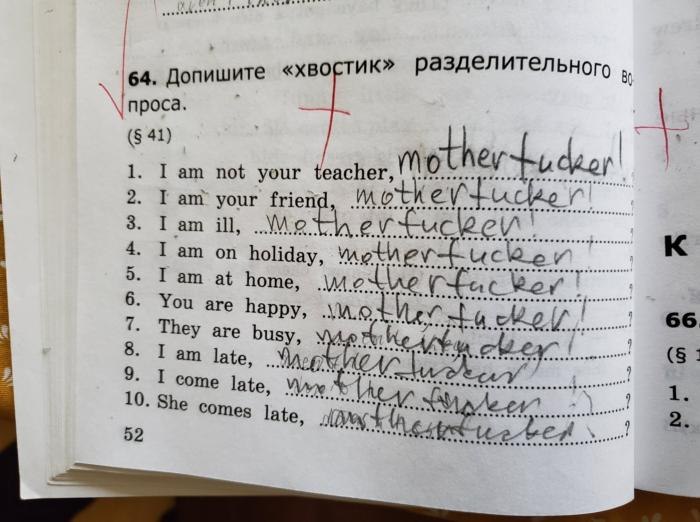 64. Допишите «хвостик» разделительного во-
проса.
(§ 41)
1. I am not your teacher, motherfucker!
2. I am your friend, motherfucker! ?
3. I am ill, motherfucker! ?
4. I am on holiday, motherfucker! ?
5. I am at home, motherfucker! ?
6. You are happy, motherfucker! ?
7. They are busy, motherfucker! ?
8. I am late, motherfucker! ?
9. I come late, motherfucker ! ?
10. She comes late, motherfucker! ?
52
К
66.
(§ 1
1.
2.